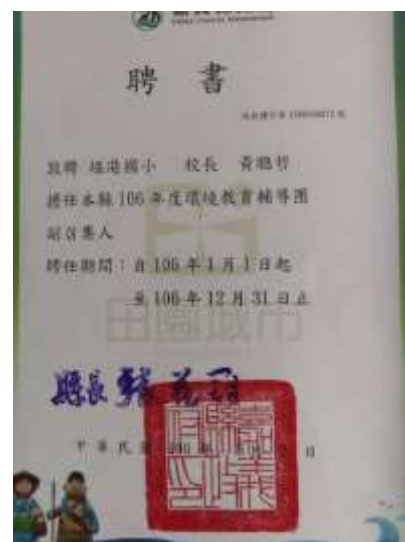 聘書
敦聘 塭港國小 校長 黃聰哲
擔任本縣 106 年度環境教育輔導團
副召集人
聘任期間：自 106 年 1 月 1 日起
至 106 年 12 月 31 日止
田園城市
縣長
中華民國
日